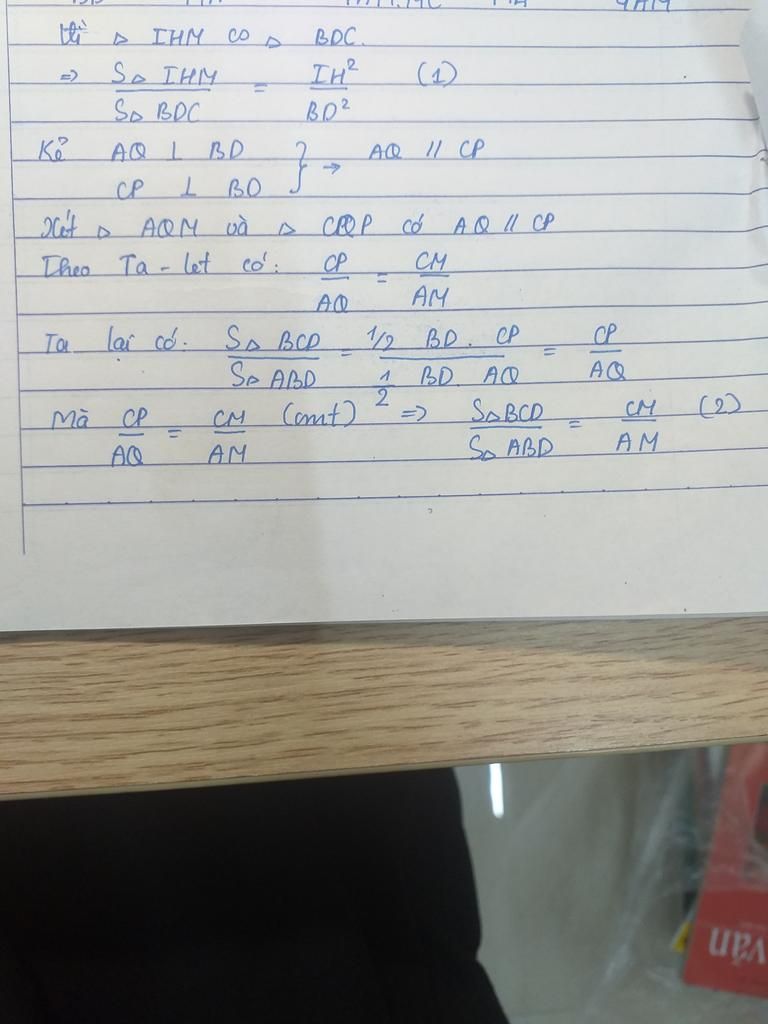 thì ▷ IHM co ▷ BDC.
=> S▷ IHM / S▷ BDC = IH² / BD² (1)
Kẻ AQ ⊥ BD } → AQ // CP
CP ⊥ BD
Xét ▷ AQM và ▷ CP có AQ // CP
Theo Ta-let có: CP / AQ = CM / AM
Ta lại có: S▷ BCD / S▷ ABD = 1/2 BD. CP / 1/2 BD AQ = CP / AQ
Mà CP / AQ = CM / AM (cmt) => S▷BCD / S▷ ABD = CM / AM (2)
văn